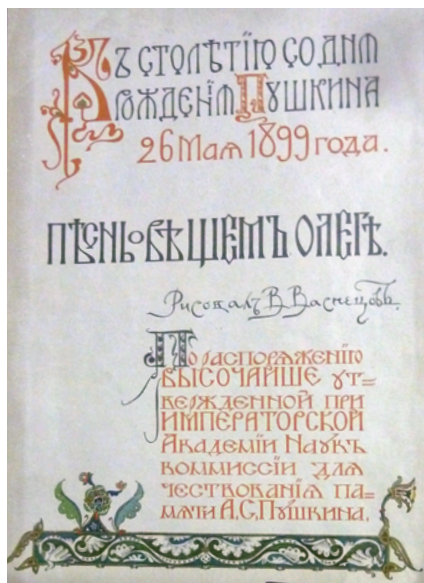 Къ столѣтїю со дня
рожденїя Пушкина
26 Мая 1899 года.
Пѣснь о вѣщемъ Олегѣ.
Рисовалъ В. Васнецовъ.
По распоряженїю
Высочайше ут=
вержденной при
Императорской
Академїи Наукъ
коммиссїи для
чествованїя па=
мяти А.С. Пушкина.